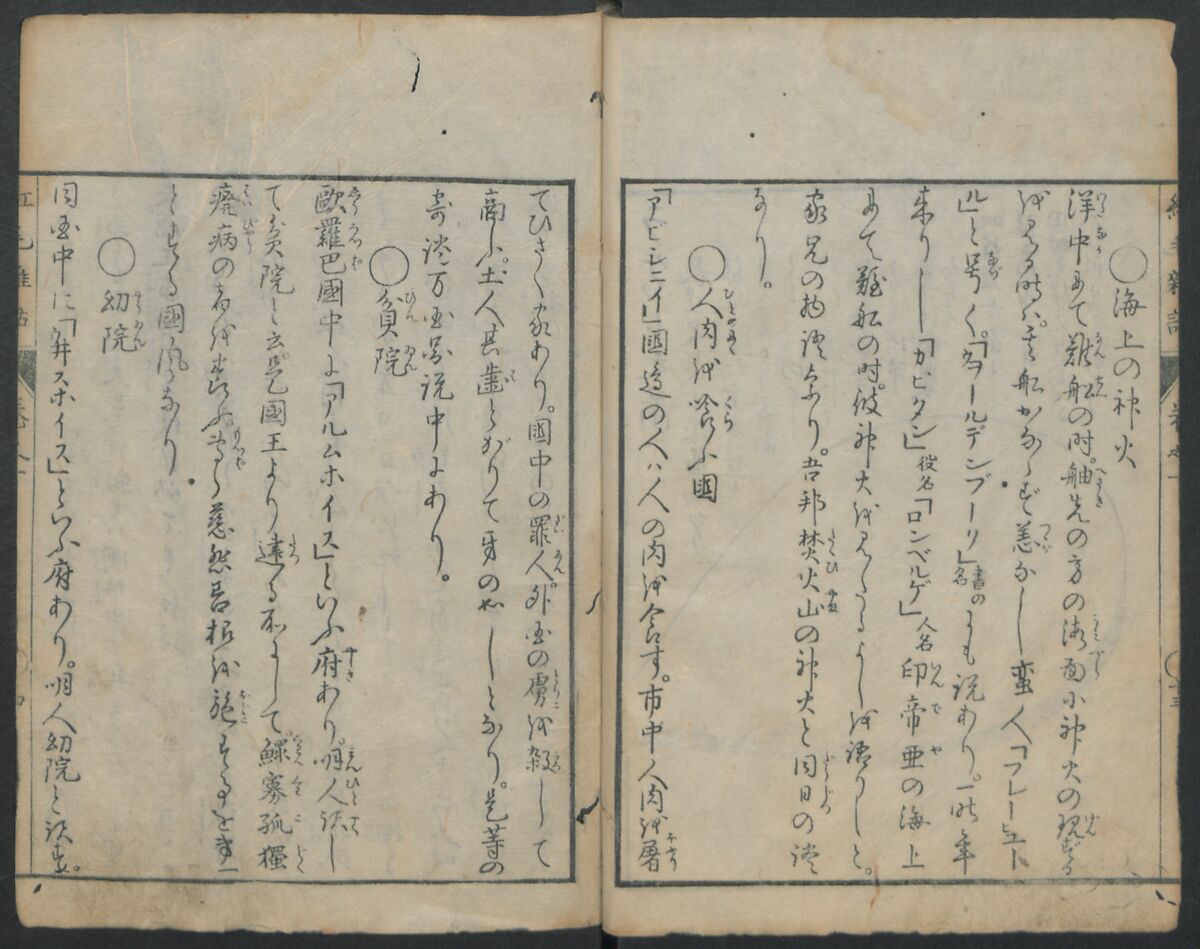 ○海上の神火
洋中にて難船の時。舳先の方の海面に神火の現ずる
をみる時ハ。其船かならず恙なしと蛮人「フレーユト
ル」と号く。「ヲールデンブーク」書の名にも説あり。一昨年
来りし「カピタン」役名「ロンベルゲ」人名印帝亜の海上
にて難船の時。彼神火をみたるよしを語りしと。
家兄の物語なり。吾邦焚火山の神火と同日の談
なり。
○人肉を喰ふ国
「アビシニイ」国辺の人ハ人の肉を食す。市中人肉を屠
てひさく家あり。国中の罪人。外国の虜を殺して
商ふ。土人甚歯とがりて牙のごとしとなり。是等の
奇談万国図説中にあり。
○貧院
欧羅巴国中に「アルムホイス」といふ府あり。明人訳し
て貧院と云。是国王より建る所にして。鰥寡孤独
癈病の者を養ふ。専ら慈悲善根を施すことを第一
とする国風なり
○幼院
同国中に「弁スホイス」といふ府あり。明人幼院と訳す。